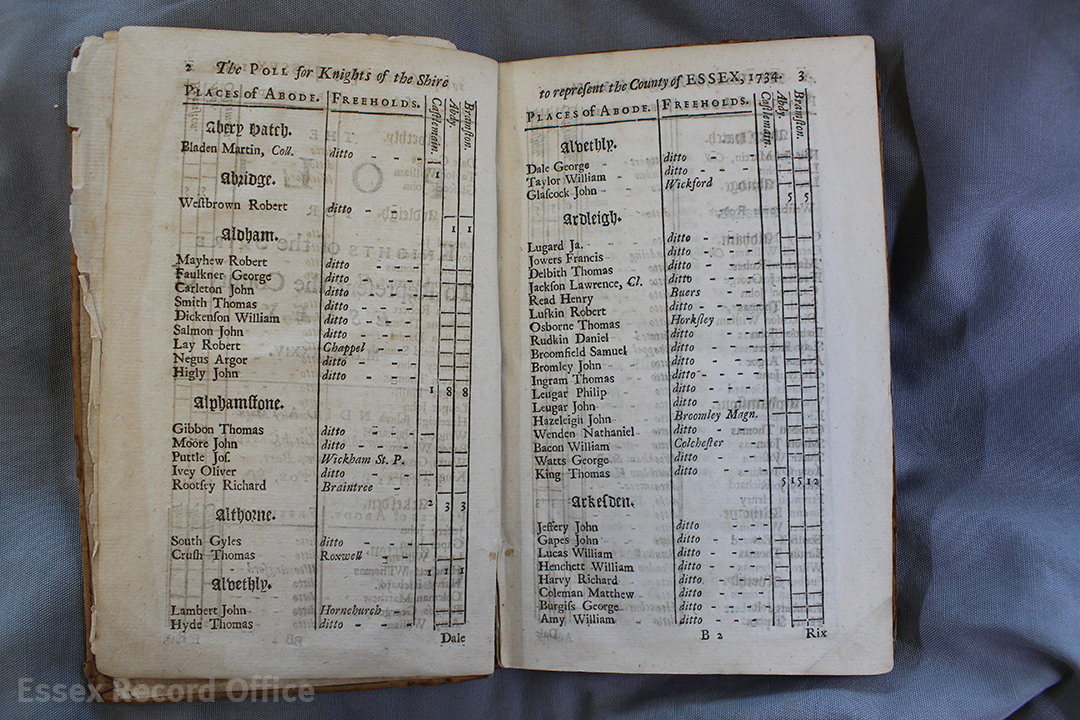 2 The POLL for Knights of the Shire
PLACES of ABODE. FREEHOLDS. Castlemain. Abdy. Bramston.
Abery Hatch.
Bladen Martin, Coll. ditto - - -
1
Abridge.
Weſtbrown Robert ditto - -
1 1
Aldham.
Mayhew Robert ditto - - -
Faulkner George ditto - - -
Carleton John ditto - - -
Smith Thomas ditto - - -
Dickenſon William ditto - - -
Salmon John ditto - - -
Lay Robert Chappel - -
Negus Argor ditto - - -
Higly John ditto - - -
1 8 8
Alphamſtone.
Gibbon Thomas ditto - - -
Moore John ditto - - -
Puttle Joſ. Wickham St. P.
Ivey Oliver ditto - - -
Rootſey Richard Braintree -
2 3 3
Althorne.
South Gyles ditto - - -
Cruſh Thomas Roxwell - -
1 1 1
Alvethly.
Lambert John Hornchurch
Hyde Thomas ditto - - -
Dale
to repreſent the County of ESSEX, 1734. 3
PLACES of ABODE. FREEHOLDS. Caſtlemain. Abdy. Bramſton.
Alvethly.
Dale George - ditto - - -
Taylor William - ditto - - -
Glaſcock John - Wickford
5 5
Ardleigh.
Lugard Ja. - ditto - - -
Jowers Francis ditto - - -
Delbith Thomas ditto - - -
Jackſon Lawrence, Cl. ditto - - -
Read Henry Buers - - -
Luſkin Robert ditto - - -
Osborne Thomas Horkſley - -
Rudkin Daniel - ditto - - -
Broomfield Samuel ditto - - -
Bromley John - ditto - - -
Ingram Thomas ditto - - -
Leugar Philip ditto - - -
Leugar John - ditto - - -
Hazeleigh John - Broomley Magn.
Wenden Nathaniel - ditto - - -
Bacon William - Colcheſter -
Watts George - ditto - - -
King Thomas - ditto - - -
5 15 12
Arkeſden.
Jeffery John ditto - - -
Gapes John - ditto - - -
Lucas William ditto - - -
Henchett William ditto - - -
Harvy Richard - ditto - - -
Coleman Matthew ditto - - -
Burgiſs George - ditto - - -
Amy William - ditto - - -
B 2 Rix
Essex Record Office